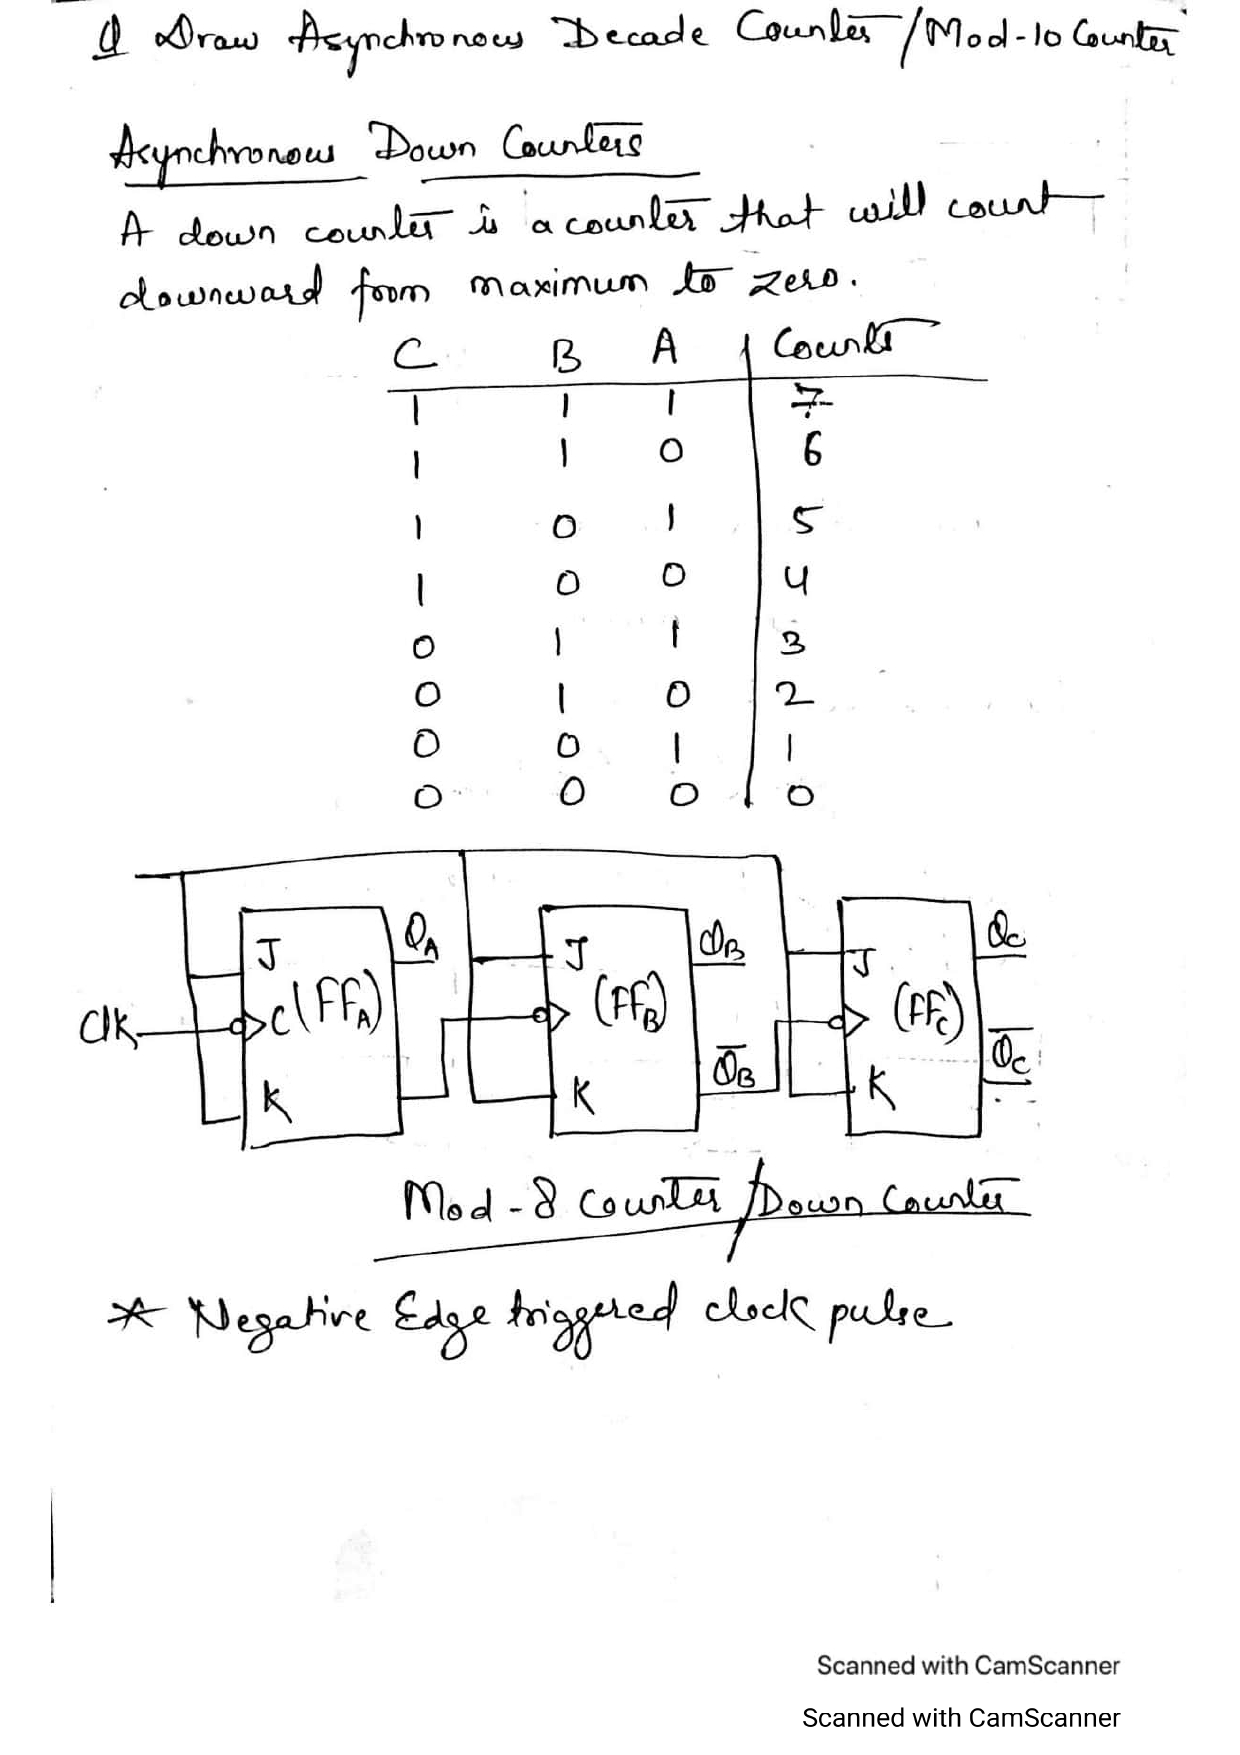 Q Draw Asynchronous Decade Counter/Mod-10 Counter
Asynchronous Down Counters
A down counter is a counter that will count
downward from maximum to zero.
C B A Counter
1 1 1 7
1 1 0 6
1 0 1 5
1 0 0 4
0 1 1 3
0 1 0 2
0 0 1 1
0 0 0 0
J QA J QB J QC
Clk C (FFA) (FFB) (FFC)
K K Q̅B K Q̅C
Mod-8 Counter/Down Counter
* Negative Edge triggered clock pulse
Scanned with CamScanner
Scanned with CamScanner